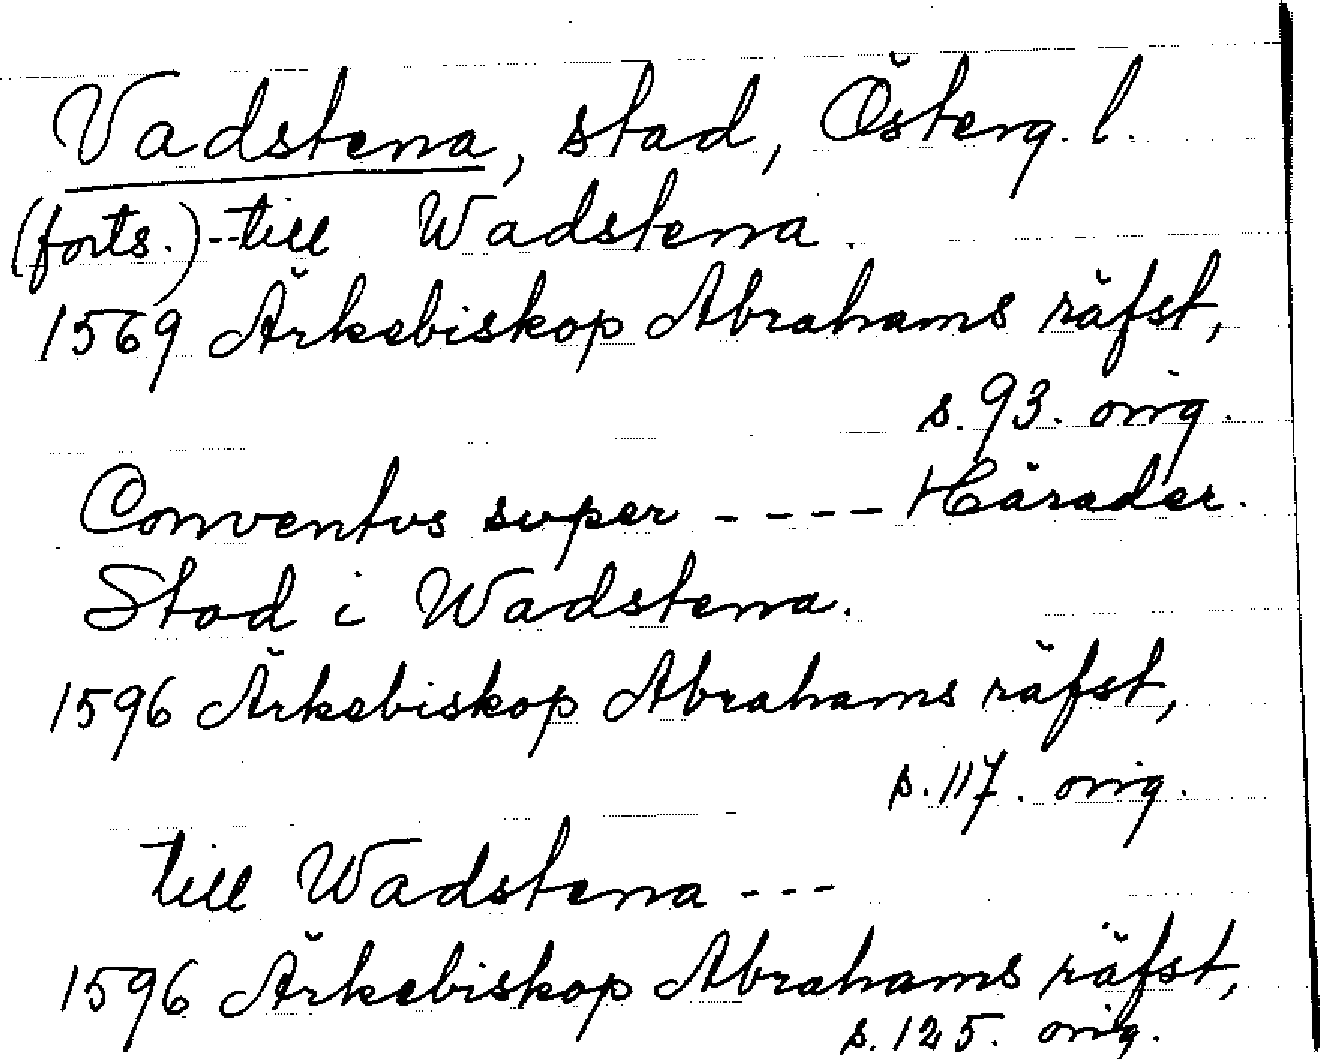 Vadstena, stad, Österg. l.
(forts.) -- till Wadstena.
1569 Ärkebiskop Abrahams räfst,
s. 93. orig.
Conventus super ---- Härader.
Stad i Wadstena.
1596 Ärkebiskop Abrahams räfst,
s. 117. orig.
till Wadstena ---
1596 Ärkebiskop Abrahams räfst,
s. 125. orig.